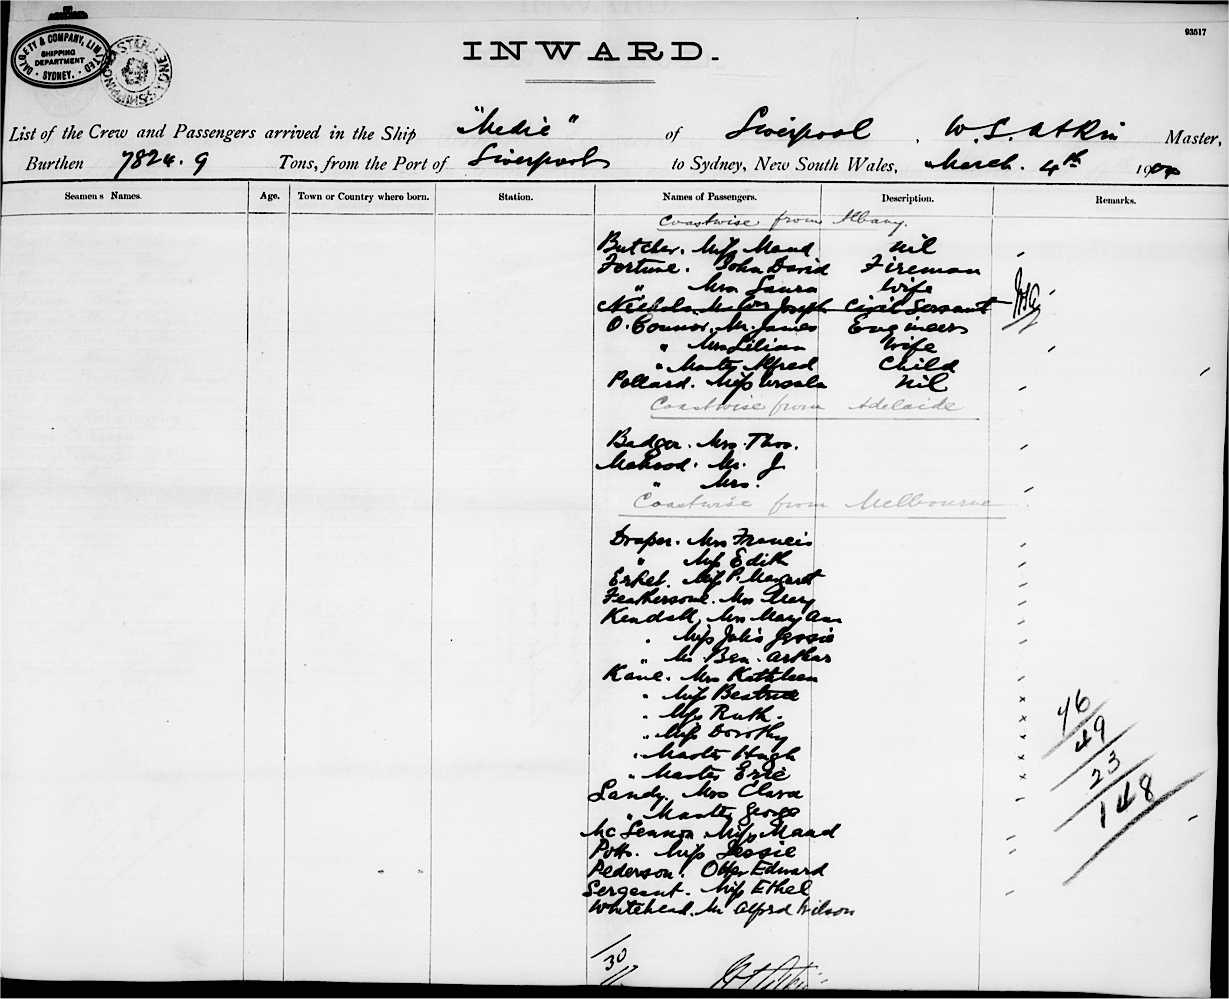 93517
DALGETY & COMPANY, LIMITED
SHIPPING
DEPARTMENT
SYDNEY.
INWARD.
List of the Crew and Passengers arrived in the Ship "Medic" of Liverpool, W S. Atkin Master,
Burthen 7824.9 Tons, from the Port of Liverpool to Sydney, New South Wales, March 4th 1904
Seamens Names. Age. Town or Country where born. Station. Names of Passengers. Description. Remarks.
Coastwise from Albany.
Butcher. Miss Maud Nil
Fortune. John David Fireman
" Mrs Laura Wife
Nichols. Mr Wm Joseph Civil Servant
O'Connor. Mr. James Engineer
" Mrs Lilian Wife
" Master Alfred Child
Pollard. Miss Ursula Nil
Coastwise from Adelaide
Badger. Mrs. Thos.
Mr. J
" Mrs.
Coastwise from Melbourne
Draper. Mrs Francis
" Miss Edith
Miss P. Margaret
Mrs Mary
Kendall, Mrs Mary Ann
" Miss Julia Jessie
" Mr. Ben. Arthur
Kane. Mrs Kathleen
" Miss Beatrice
" Miss Ruth.
" Miss Dorothy
" Master Hugh
" Master Eric
Landy. Mrs Clara
" Master George
McLennon. Miss Maud
Potts. Miss Jessie
Pederson. Edward
Sergeant. Miss Ethel
Whitehead. Mr Alfred Wilson
76
49
23
148
30